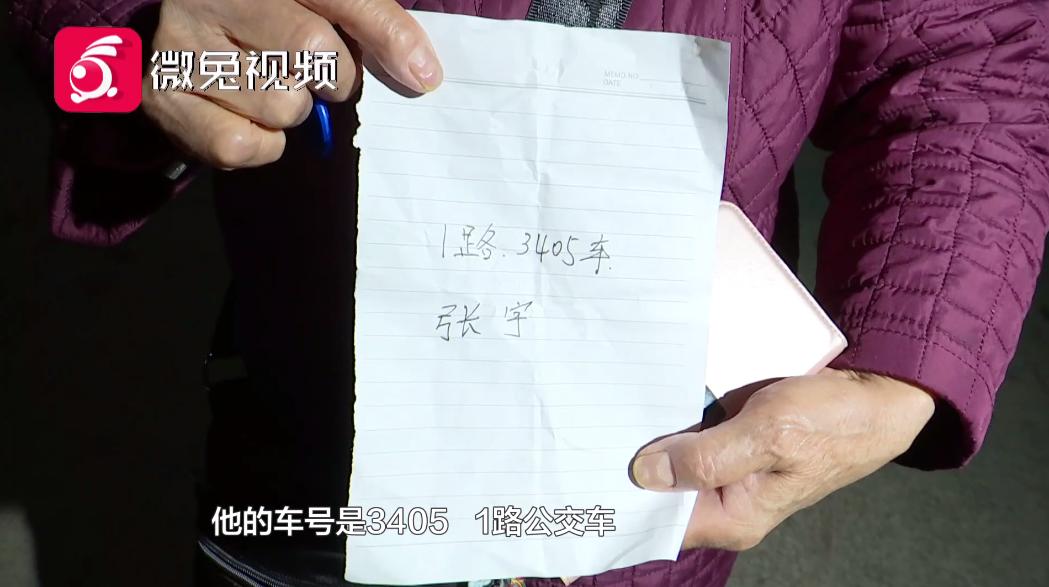 微兔视频
MEMO NO
DATE
1路. 3405车.
张宇
他的车号是3405 1路公交车